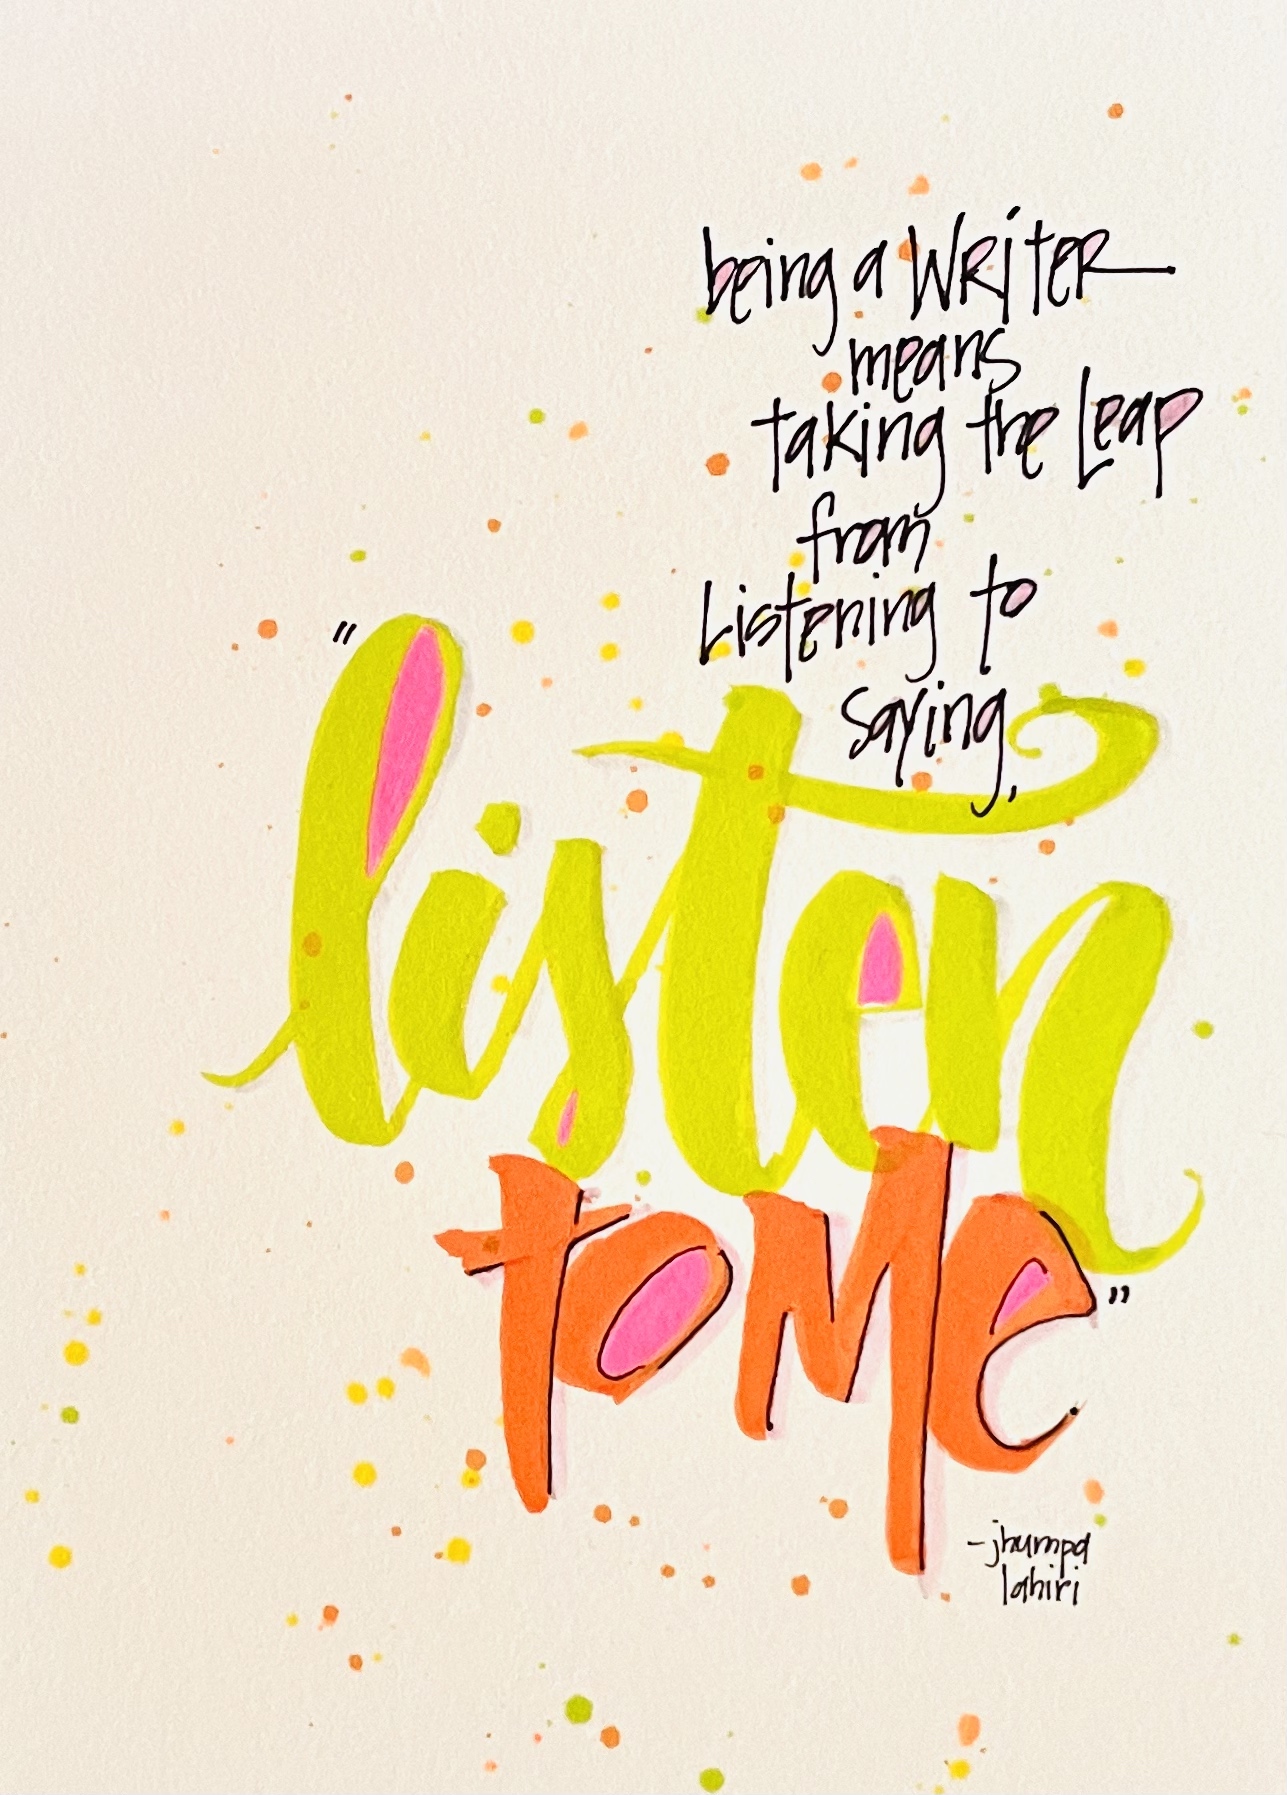 being a WRiTER
means
taking the Leap
from
Listening to
saying,
"listen
to Me"
-jhumpa
lahiri